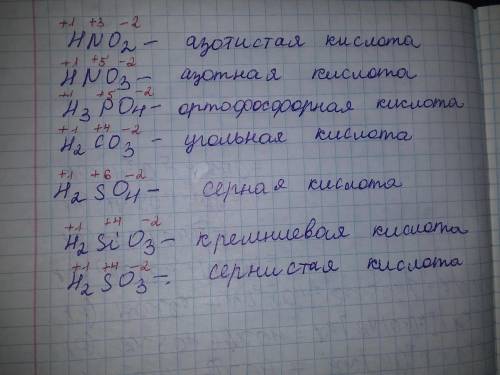 +1 +3 -2
HNO2 - азотистая кислота
+1 +5 -2
HNO3 - азотная кислота
+1 +5 -2
H3PO4 - ортофосфорная кислота
+1 +4 -2
H2CO3 - угольная кислота
+1 +6 -2
H2SO4 - серная кислота
+1 +4 -2
H2SiO3 - кремниевая кислота
+1 +4 -2
H2SO3 - сернистая кислота